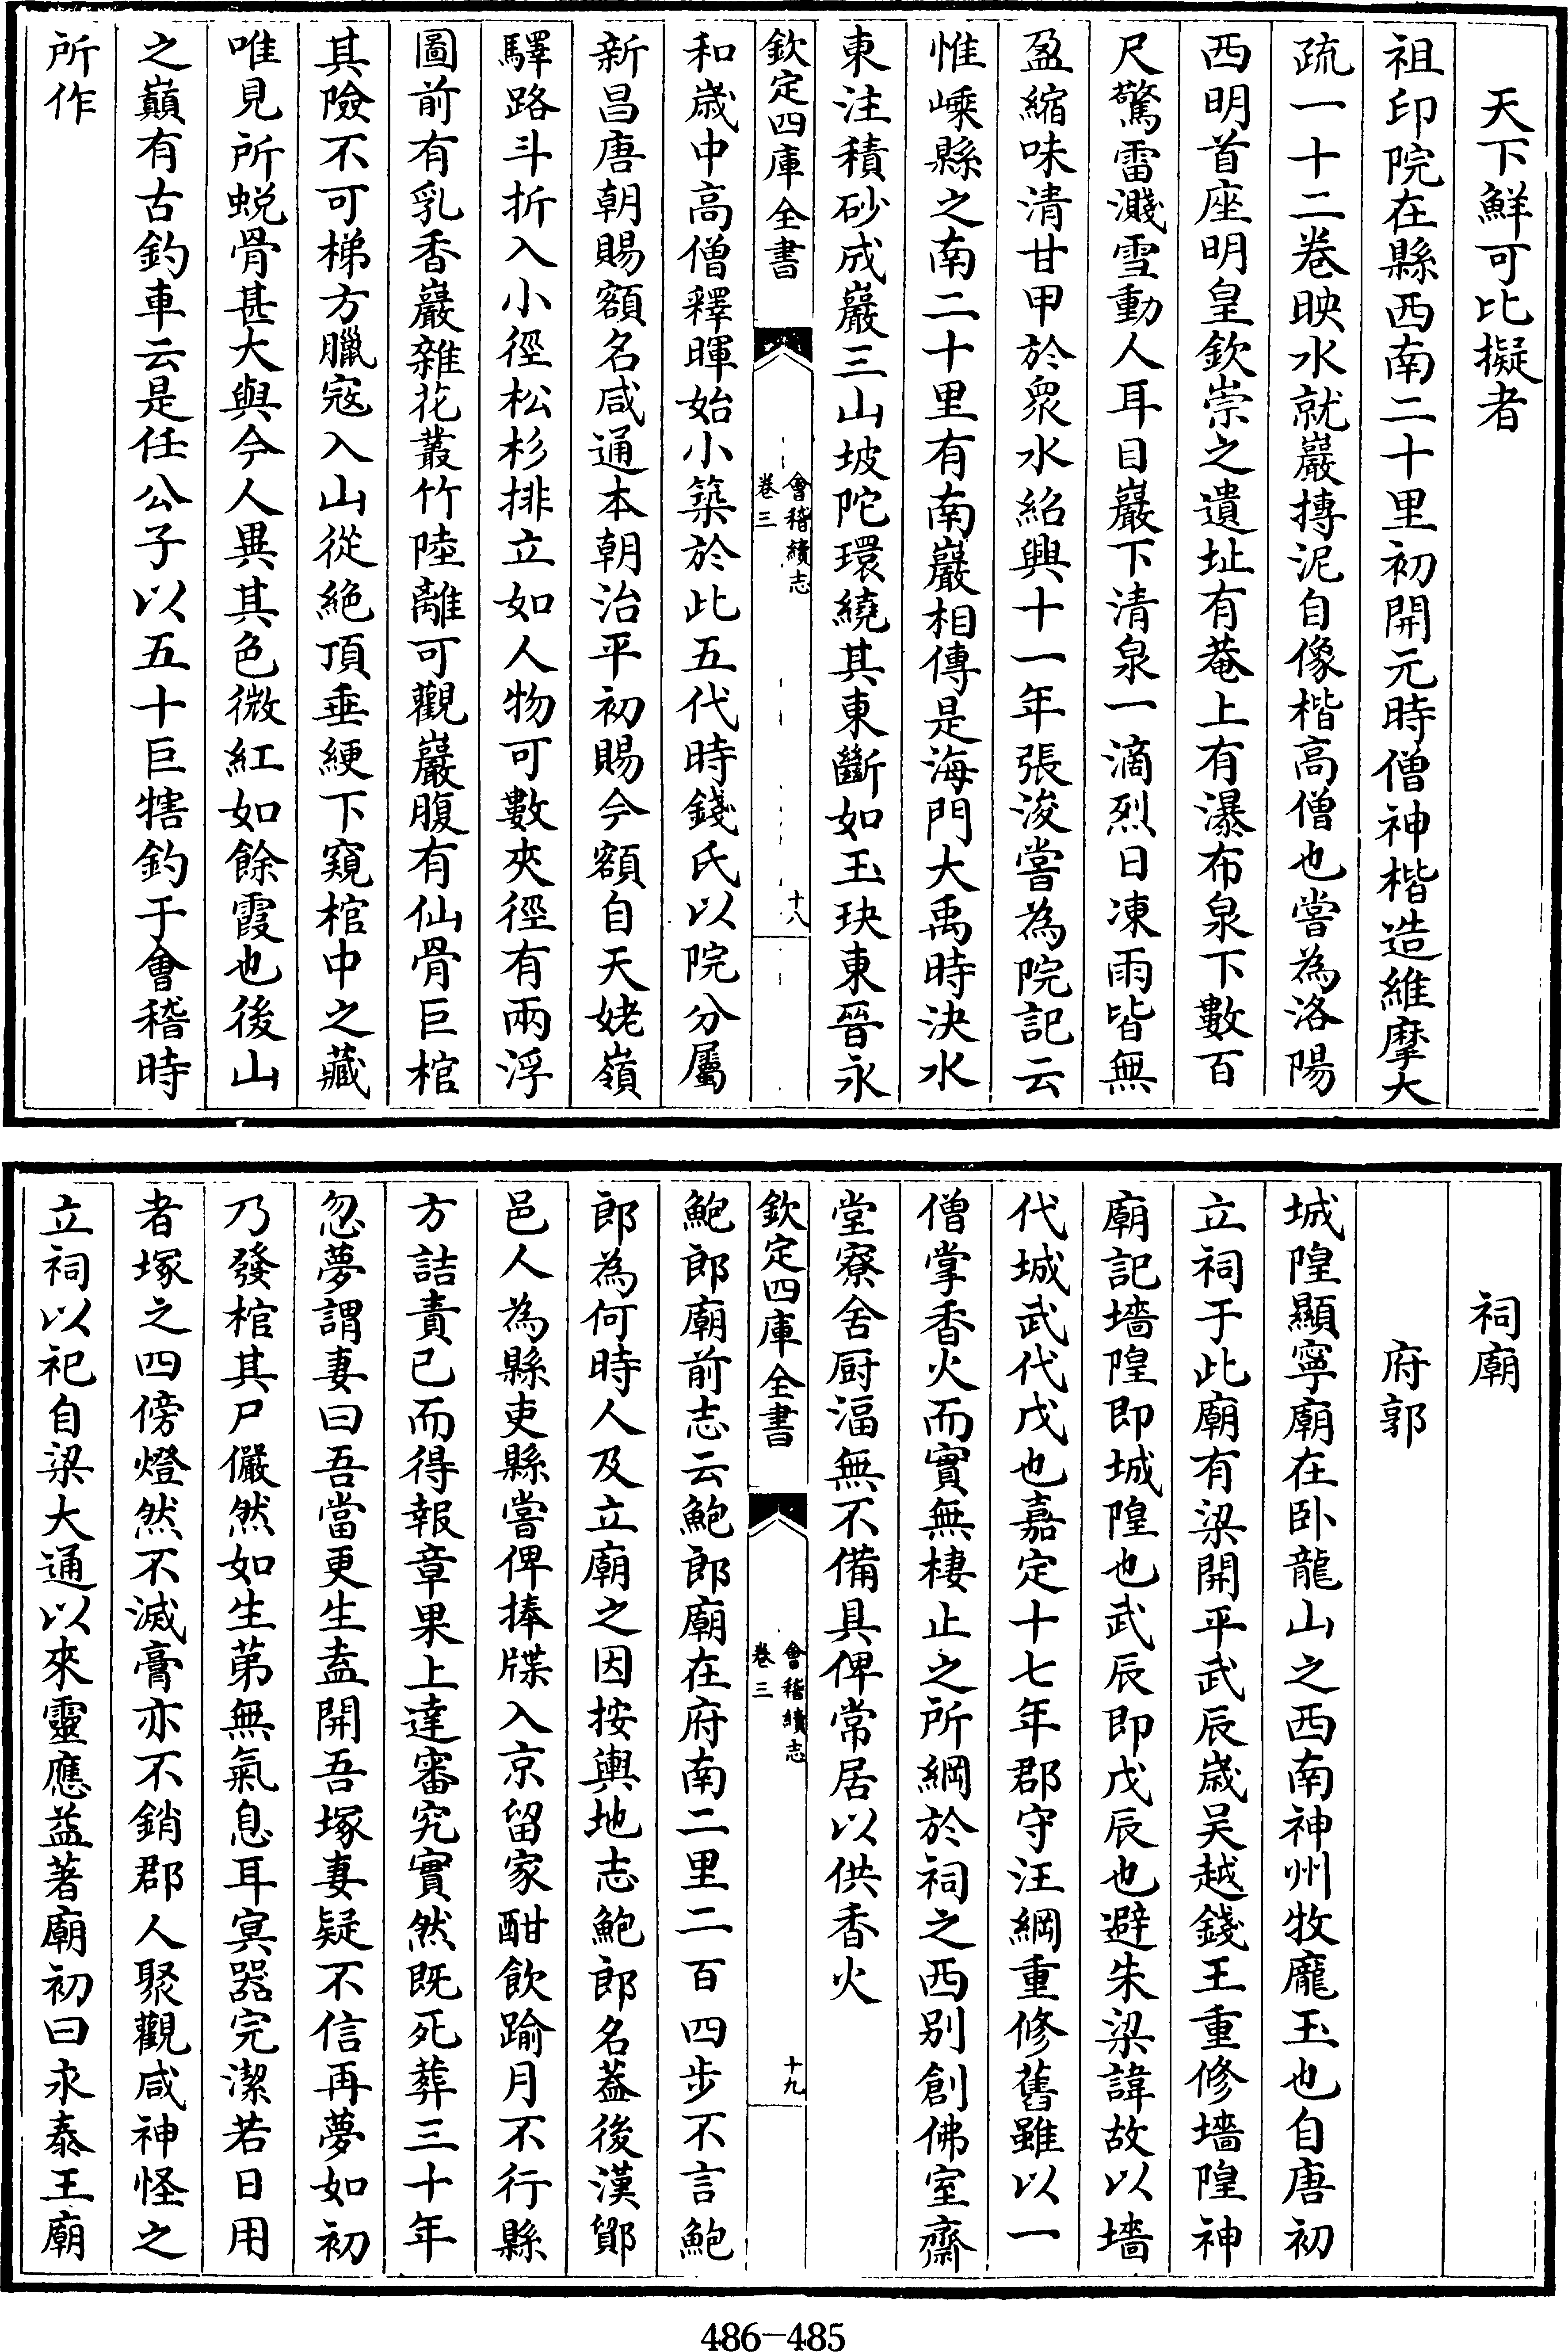 天下鮮可比擬者
祖印院在縣西南二十里初開元時僧神楷造維摩大
疏一十二卷映水就巖摶泥自像楷高僧也嘗為洛陽
西明首座明皇欽崇之遺址有菴上有瀑布泉下數百
尺驚雷濺雪動人耳目巖下清泉一滴烈日凍雨皆無
盈縮味清甘甲於衆水紹興十一年張浚嘗為院記云
惟嵊縣之南二十里有南巖相傳是海門大禹時決水
東注積砂成巖三山坡陀環繞其東斷如玉玦東晉永
欽定四庫全書
會稽續志
卷三
十八
和歲中高僧釋暉始小築於此五代時錢氏以院分屬
新昌唐朝賜額名咸通本朝治平初賜今額自天姥嶺
驛路斗折入小徑松杉排立如人物可數夾徑有兩浮
圖前有乳香巖雜花叢竹陸離可觀巖腹有仙骨巨棺
其險不可梯方臘寇入山從絶頂垂綆下窺棺中之藏
唯見所蜕骨甚大與今人異其色微紅如餘霞也後山
之巔有古釣車云是任公子以五十巨犗釣于會稽時
所作
祠廟
府郭
城隍顯寧廟在卧龍山之西南神州牧龎玉也自唐初
立祠于此廟有梁開平武辰歲吴越錢王重修墻隍神
廟記墻隍即城隍也武辰即戊辰也避朱梁諱故以墻
代城武代戊也嘉定十七年郡守汪綱重修舊雖以一
僧掌香火而實無棲止之所綱於祠之西别創佛室齋
堂寮舍厨湢無不備具俾常居以供香火
欽定四庫全書
會稽續志
卷三
十九
鮑郎廟前志云鮑郎廟在府南二里二百四步不言鮑
郎為何時人及立廟之因按輿地志鮑郎名葢後漢鄮
邑人為縣吏縣嘗俾捧牒入京留家酣飲踰月不行縣
方詰責已而得報章果上達審究實然既死葬三十年
忽夢謂妻曰吾當更生盍開吾塚妻疑不信再夢如初
乃發棺其尸儼然如生苐無氣息耳冥器完潔若日用
者塚之四傍燈然不滅膏亦不銷郡人聚觀咸神怪之
立祠以祀自梁大通以來靈應益著廟初曰永泰王廟
486-485